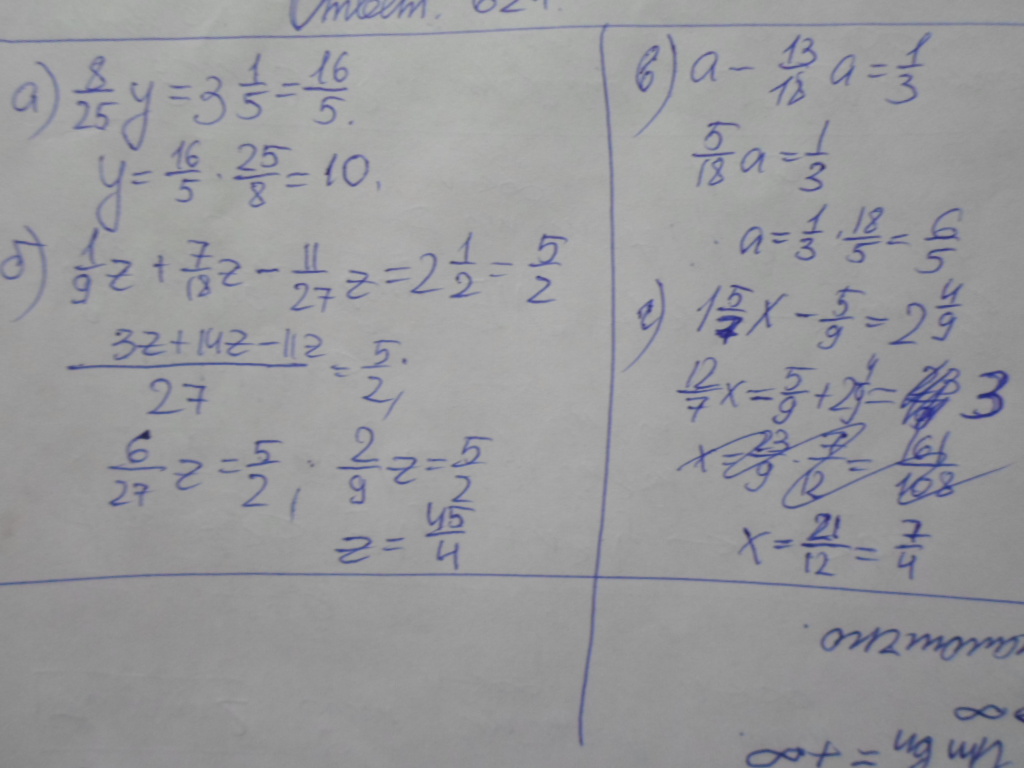 Ответ. 624.
а) 8/25 y = 3 1/5 = 16/5.
y = 16/5 · 25/8 = 10.
б) 1/9 z + 7/18 z − 11/27 z = 2 1/2 = 5/2
(3z + 14z − 11z)/27 = 5/2,
6/27 z = 5/2, 2/9 z = 5/2
z = 45/4
в) a − 13/18 a = 1/3
5/18 a = 1/3
a = 1/3 · 18/5 = 6/5
г) 1 5/7 x − 5/9 = 2 4/9
12/7 x = 5/9 + 2 4/9 = 3
x = 23/9 · 7/12 = 161/108
x = 21/12 = 7/4
∞
= +∞